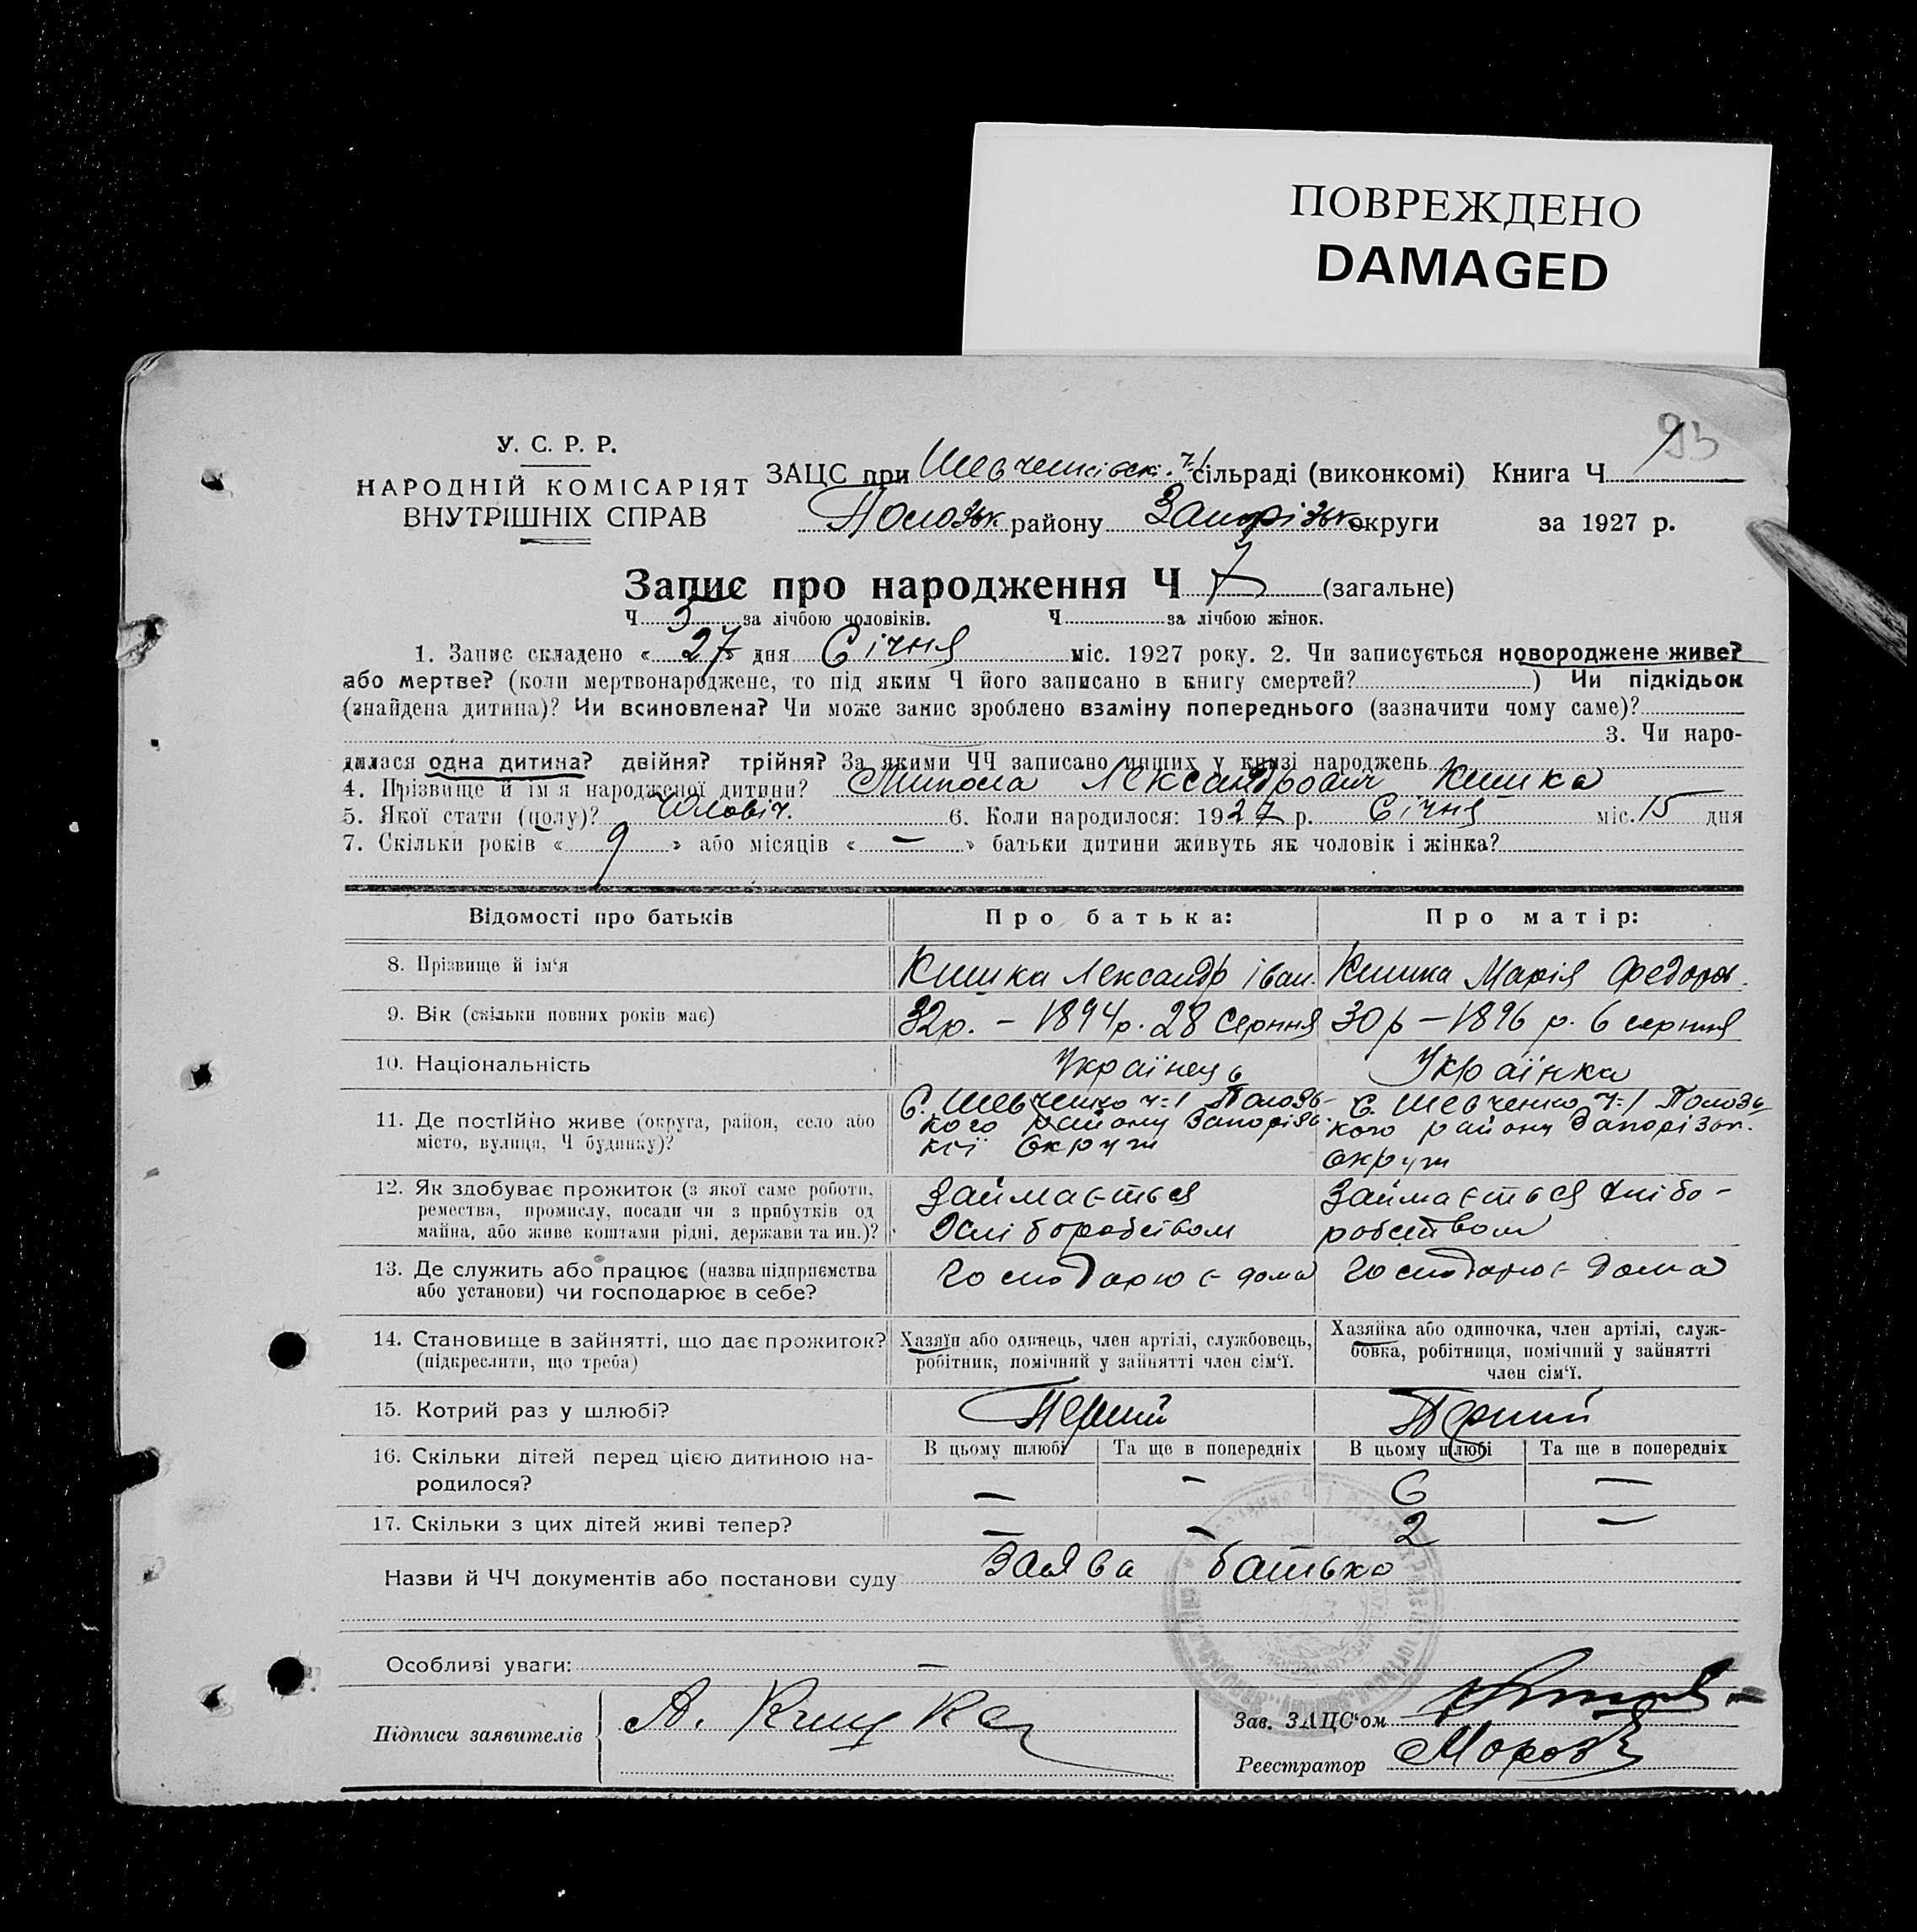 ПОВРЕЖДЕНО
DAMAGED
93
У. С. Р. Р.
НАРОДНІЙ КОМІСАРІЯТ
ВНУТРІШНІХ СПРАВ
ЗАЦС при Шевченківськ. ч.1 сільраді (виконкомі) Книга Ч 1
Полозьк району Запорізьк округи за 1927 р.
Запис про народження Ч 7 (загальне)
Ч 5 за лічбою чоловіків. Ч за лічбою жінок.
1. Запис складено « 27 » дня Січня міс. 1927 року. 2. Чи записується новороджене живе?
або мертве? (коли мертвонароджене, то під яким Ч його записано в книгу смертей? ) Чи підкідьок
(знайдена дитина)? Чи всиновлена? Чи може запис зроблено взаміну попереднього (зазначити чому саме)?
3. Чи наро-
дилася одна дитина? двійня? трійня? За якими ЧЧ записано инших у книзі народжень
4. Прізвище й ім'я народженої дитини? Микола Лександрович Кишка
5. Якої стати (полу)? Чоловіч. 6. Коли народилося: 1927 р. Січня міс. 15 дня
7. Скільки років « 9 » або місяців « — » батьки дитини живуть як чоловік і жінка?
Відомості про батьків Про батька: Про матір:
8. Прізвище й ім'я Кишка Лександр Іван. Кишка Марія Федоров.
9. Вік (скільки повних років має) 32 р. – 1894 р. 28 Серпня 30 р – 1896 р. 6 серпня
10. Національність Українець Українка
11. Де постійно живе (округа, район, село або
місто, вулиця, Ч будинку)?
С. Шевченко ч-1 Полозь-
кого району Запорізь-
кої Округи
С. Шевченко ч-1 Полозь
кого району Запорізьк.
округи
12. Як здобуває прожиток (з якої саме роботи,
ремества, промислу, посади чи з прибутків од
майна, або живе коштами рідні, держави та ин.)?
Займається
хліборобством
Займається хлібо-
робством
13. Де служить або працює (назва підприємства
або установи) чи господарює в себе?
господарює дома господарює дома
14. Становище в зайнятті, що дає прожиток?
(підкреслити, що треба)
Хазяїн або одинець, член артілі, службовець,
робітник, помічний у зайнятті член сім'ї.
Хазяйка або одиночка, член артілі, служ-
бовка, робітниця, помічний у зайнятті
член сім'ї.
15. Котрий раз у шлюбі? Перший Перший
16. Скільки дітей перед цією дитиною на-
родилося?
В цьому шлюбі Та ще в попередніх В цьому шлюбі Та ще в попередніх
— — 6 —
17. Скільки з цих дітей живі тепер? — — 2 —
Назви й ЧЧ документів або постанови суду Заява батька
Особливі уваги: —
Підписи заявителів А. Кишка
Зав. ЗАЦС'ом
Реєстратор Мороз